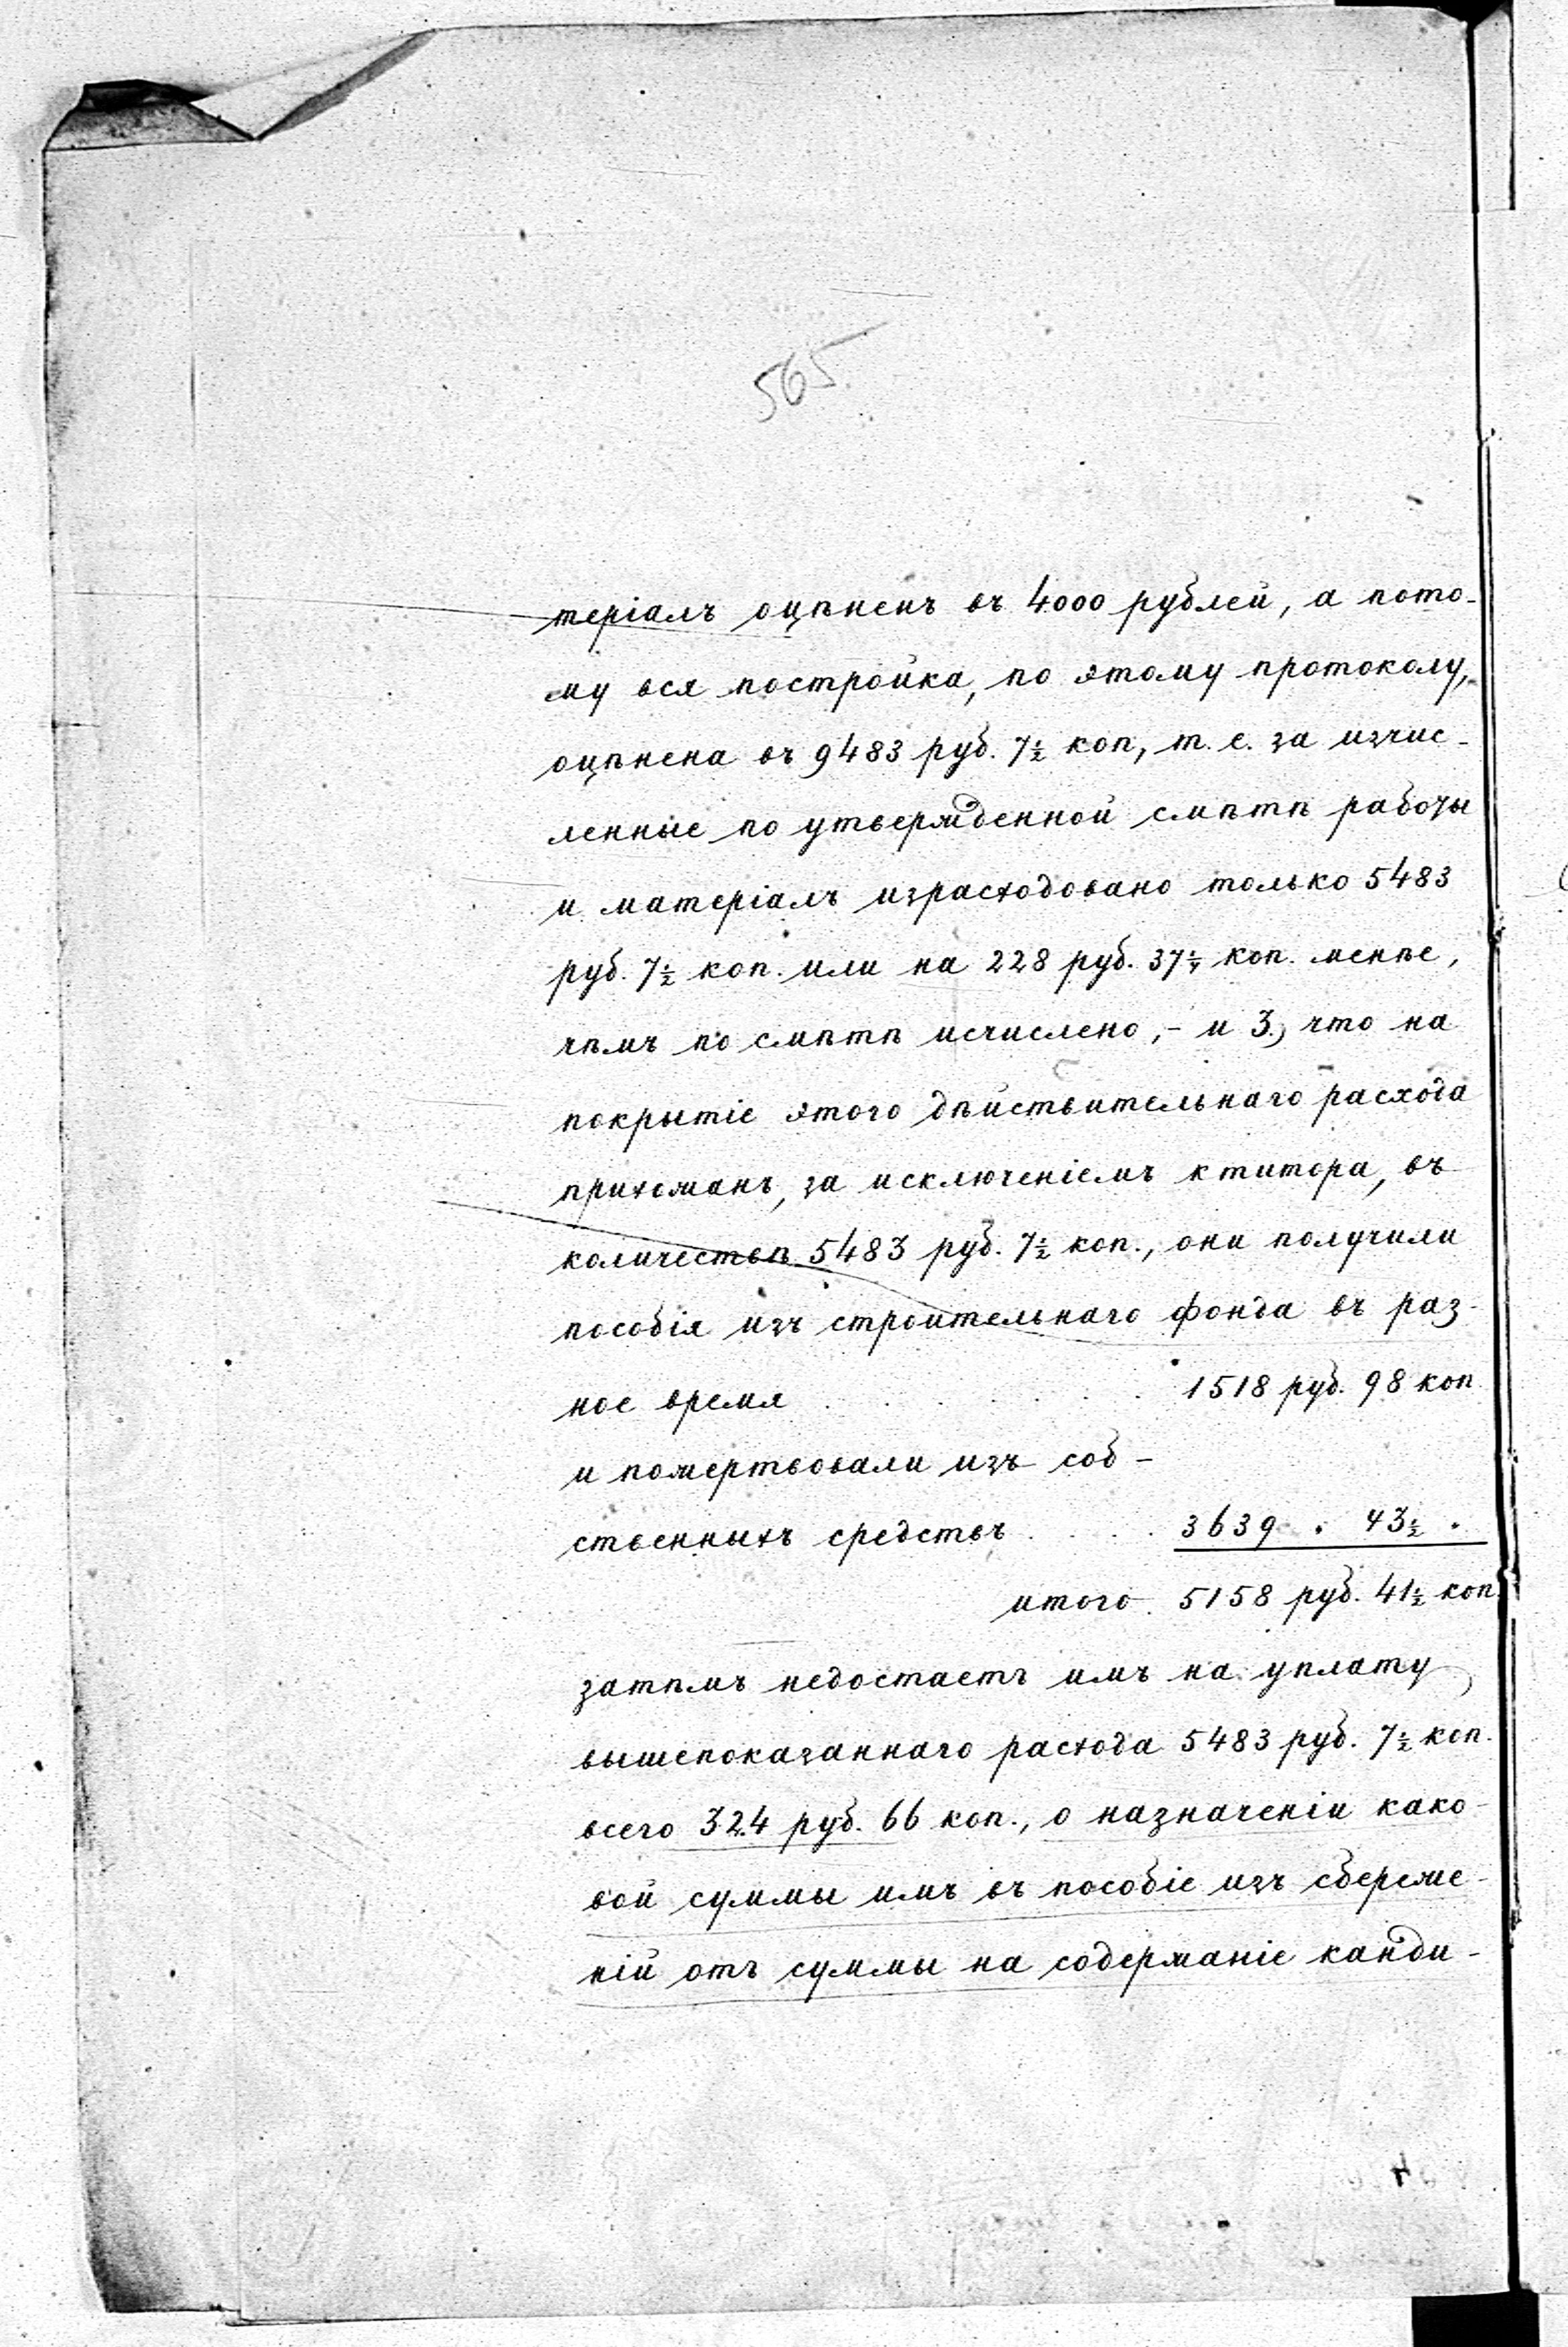 565
теріалъ оцѣненъ въ 4000 рублей, а пото-
му вся постройка, по этому протоколу,
оцѣнена въ 9483 руб. 7½ коп, т. е. за изчис-
ленные по утвержденной смѣтѣ работы
и матеріалъ израсходовано только 5483
руб. 7½ коп. или на 228 руб. 37¼ коп. менѣе,
чѣмъ по смѣтѣ исчислено, - и 3, что на
покрытіе этого дѣйствительнаго расхода
прихожанъ, за исключеніемъ ктитора, въ
количествѣ 5483 руб. 7½ коп., они получили
пособія изъ строительнаго фонда въ раз-
ное время . . . . . . 1518 руб. 98 коп
и пожертвовали изъ соб-
ственныхъ средствъ . . . 3639 „ 43½ „
итого. 5158 руб. 41½ коп.
затѣмъ недостаетъ имъ на уплату
вышепоказаннаго расхода 5483 руб. 7½ коп.
всего 324 руб. 66 коп., о назначеніи како-
вой суммы имъ въ пособіе изъ сбереже-
ній отъ суммы на содержаніе канди-